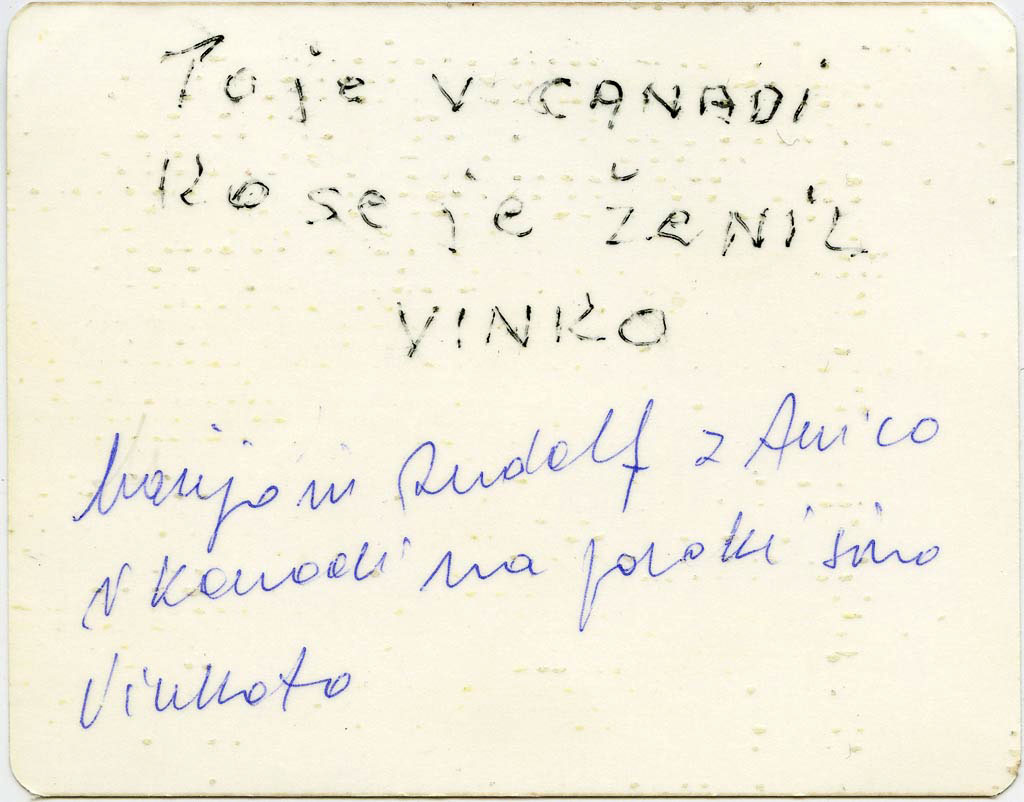 To je v CANADI
Ko se je ženil
VINKO
Marija in Rudolf z Anico
v Kanadi na poroki sina
Vinkota